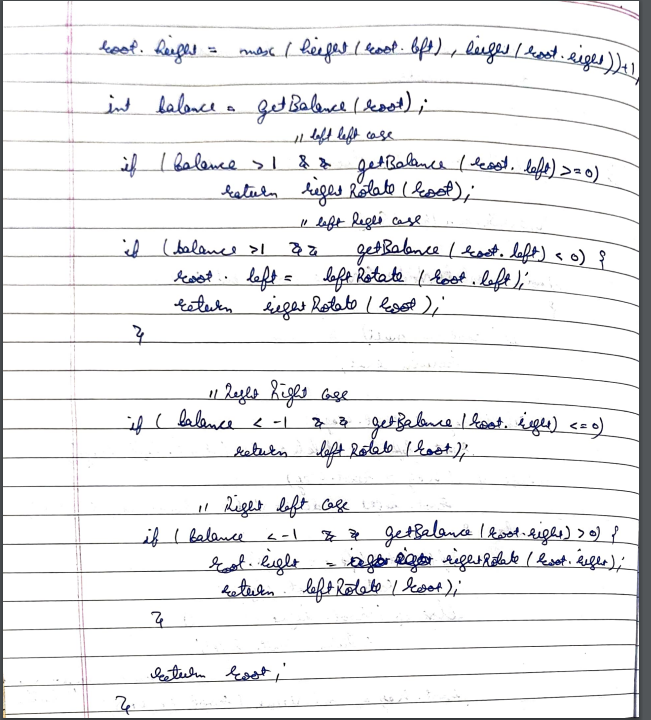 root. height = max ( height ( root. left) , height ( root. right))+1;
int balance = getBalance ( root) ;
// left left case
if ( balance >1 && getBalance ( root. left) >=0)
return right Rotate ( root);
// left Right case
if ( balance >1 && getBalance ( root. left) < 0) {
root. left = left Rotate ( root. left);
return right Rotate ( root );
}
// Right Right case
if ( balance < -1 && getBalance ( root. right) <=0)
return left Rotate ( root);
// Right left case
if ( balance < -1 && getBalance ( root.right) >0) {
root. right = rightRotate ( root. right);
return left Rotate ( root);
}
return root;
}